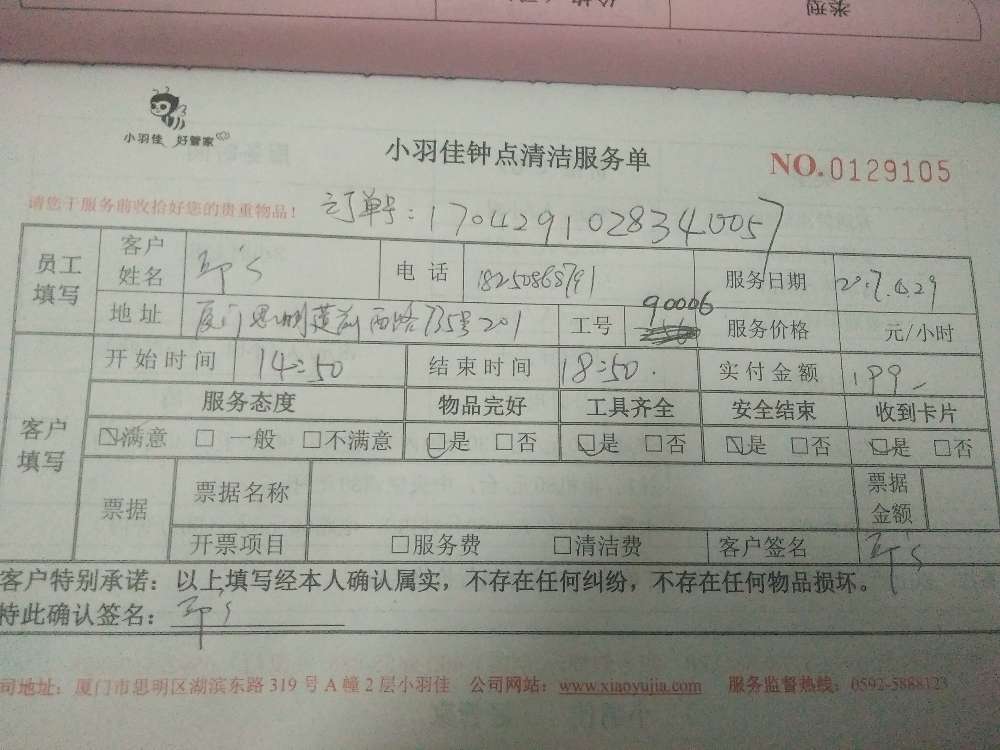 类型
小羽佳 好管家
小羽佳钟点清洁服务单
NO.0129105
请您于服务前收拾好您的贵重物品！
订单号：17042910283440057
员工填写
客户姓名
电话 18250868791
服务日期 2017.4.29
地址 厦门思明莲前西路735号201
工号 90006
服务价格 元/小时
客户填写
开始时间 14:50
结束时间 18:50.
实付金额 199
服务态度 物品完好 工具齐全 安全结束 收到卡片
☑满意 □一般 □不满意 ☑是 □否 ☑是 □否 ☑是 □否 ☑是 □否
票据
票据名称
票据金额
开票项目 □服务费 □清洁费 客户签名
客户特别承诺：以上填写经本人确认属实，不存在任何纠纷，不存在任何物品损坏。
特此确认签名：
司地址：厦门市思明区湖滨东路319号A幢2层小羽佳 公司网站：www.xiaoyujia.com 服务监督热线：0592-5888123